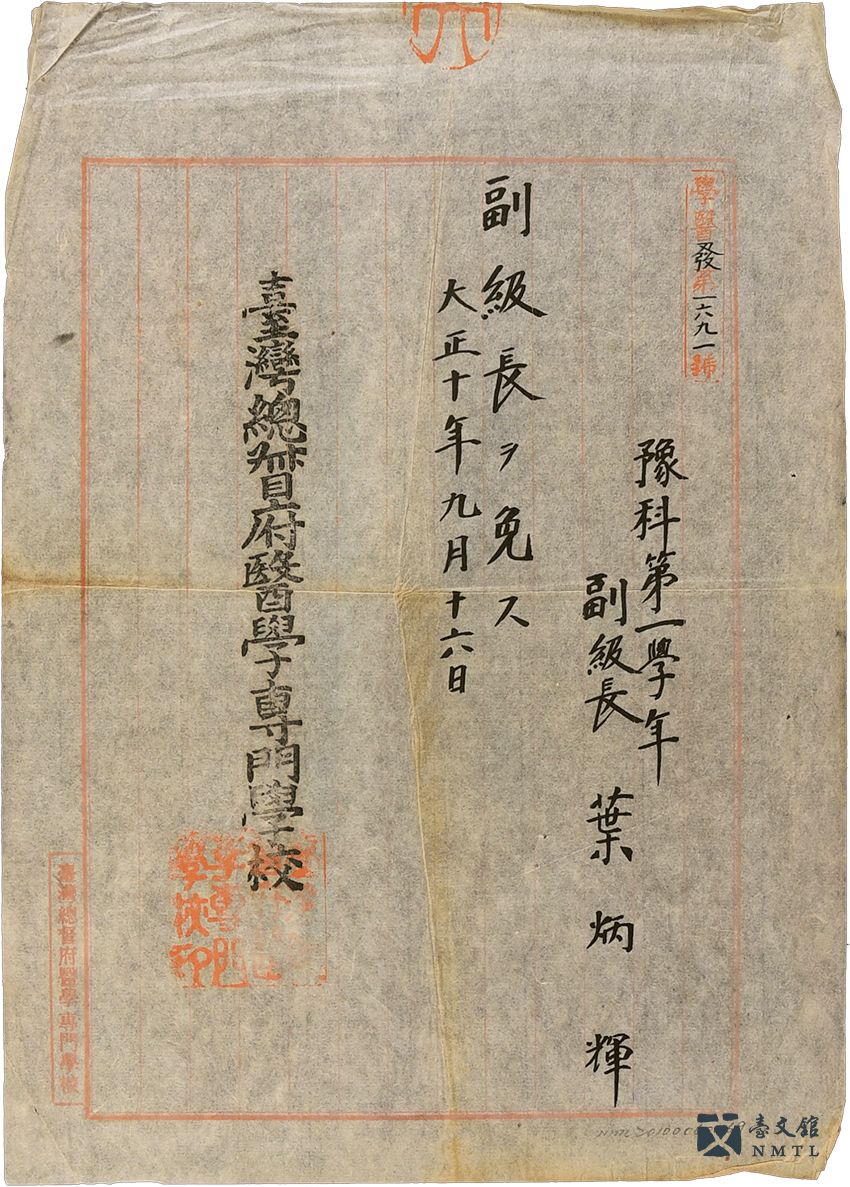 學醫發第一六九一號
豫科第一學年
副級長 葉炳輝
副級長ヲ免ス
大正十年九月十六日
臺灣總督府醫學專門學校
臺灣總督府醫學專門學校
臺文館
NMTL